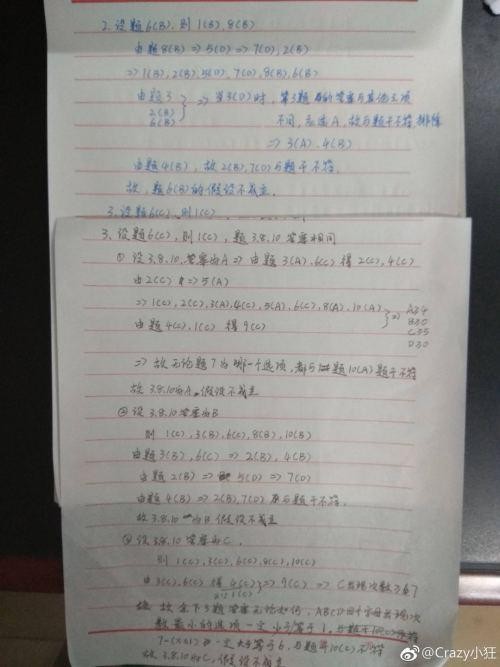 2. 设题6(B), 则1(B), 8(B)
由题8(B) ⇒ 5(D) ⇒ 7(D), 2(B)
⇒ 1(B), 2(B), 5(D), 7(D), 8(B), 6(B)
由题3
2(B)
6(B)
⇒ 当3(D)时, 第3题的答案与其他三项
不同, 应选A, 故与题干不符, 排除
⇒ 3(A), 4(B)
由题4(B), 故2(B), 7(D)与题干不符.
故, 题6(B)的假设不成立.
3. 设题6(C), 则1(C)
3. 设题6(C), 则1(C), 题3.8.10答案相同
① 设3.8.10.答案为A ⇒ 由题3(A), 6(C) 得2(C), 4(C)
由2(C) ⇒ 5(A)
⇒ 1(C), 2(C), 3(A), 4(C), 5(A), 6(C), 8(A), 10(A)
由题4(C), 1(C) 得9(C)
⇒ A34
B30
C35
D30
⇒ 故无论题7为哪一个选项, 都与题10(A)题干不符
故3.8.10为A, 假设不成立
② 设3.8.10答案为B
则1(C), 3(B), 6(C), 8(B), 10(B)
由题3(B), 6(C) ⇒ 2(B), 4(B)
由题2(B) ⇒ 5(D) ⇒ 7(D)
由题4(B) ⇒ 2(B), 7(D)与题干不符.
故3.8.10为B假设不成立
③ 设3.8.10答案为C.
则1(C), 3(C), 6(C), 8(C), 10(C)
由3(C), 6(C) 得4(C) ⇒ 9(C) ⇒ C出现次数≥67
1(C)
故余下3题答案无论如何, ABCD四个字母出现次
数最小的选项一定小于等于1, 与题干10(C)不符
一定大于等于6, 与题10(C)不符
故3.8.10为C, 假设不成立
@Crazy小狂